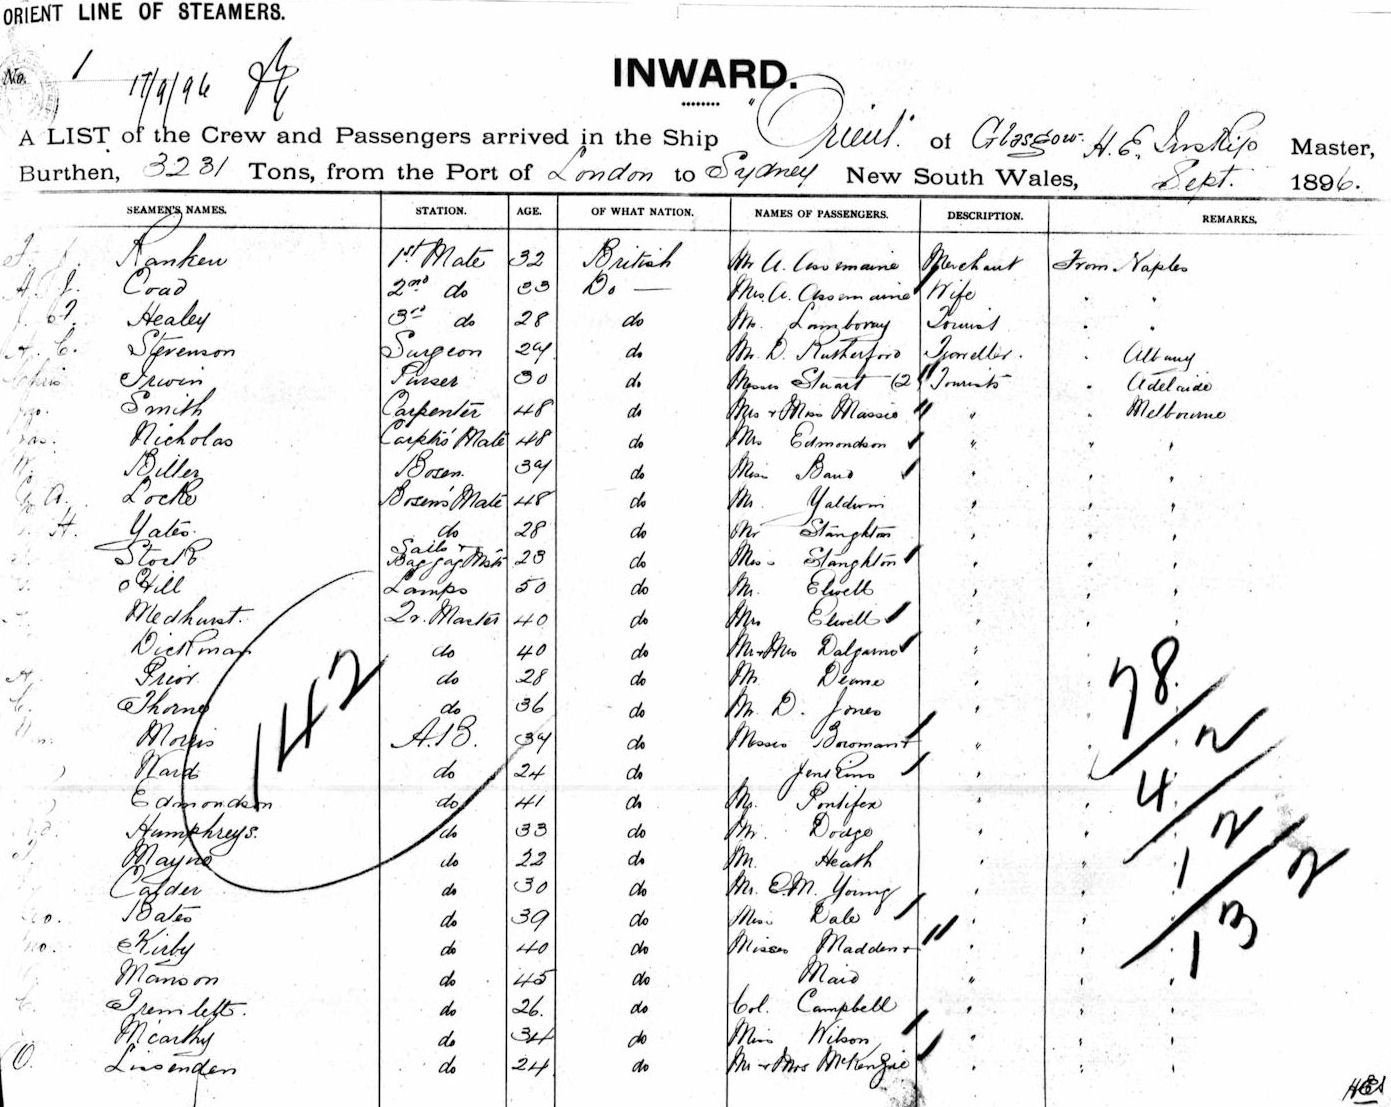 ORIENT LINE OF STEAMERS.
No. 1 17/9/96
INWARD.
A LIST of the Crew and Passengers arrived in the Ship "Orient" of Glasgow. H. E. Inskip Master,
Burthen, 3231 Tons, from the Port of London to Sydney New South Wales, Sept. 1896.
SEAMEN'S NAMES. STATION. AGE. OF WHAT NATION. NAMES OF PASSENGERS. DESCRIPTION. REMARKS.
Ranken 1st Mate 32 British Mr A. Merchant From Naples
A. J. Coad 2nd do 33 Do — Mrs. A. Wife " "
Healey 3rd do 28 do Mr. Tourist " "
A. C. Stevenson Surgeon 29 do Mr. D. Rutherford Traveller. " Albany
Irwin Purser 30 do Messrs Stuart (2 Tourists " Adelaide
Smith Carpenter 48 do Mrs + Miss Massie " " Melbourne
Nicholas Carptrs' Mate 48 do Mrs Edmondson " " "
Biller Bosen. 39 do Miss " " "
G. A. Locke Bosens' Mate 48 do Mr. Yaldwin " " "
H. Yates. do 28 do Mr Stanghton " " "
Stock Sails + Baggage Mstr 23 do Miss Stanghton " " "
Hill Lamps 50 do Mr. Elwell " " "
Medhurst. Qr. Master 40 do Mrs Elwell " " "
Dickman do 40 do Mr + Mrs Dalgarno " " "
A. Prior do 28 do Mr. Deane " " "
C. Thorne do 36 do Mr. D. Jones " " "
Morris A.B. 39 do Messrs Bowman + " " "
Ward do 24 do Jenkins " " "
Edmondson do 41 do Mr. Pontifex " " "
Humphreys. do 33 do Mr. Dodge " " "
Mayne do 22 do Mr. Heath " " "
Calder do 30 do Mr. E.M. Young " " "
Geo. Bates do 39 do Miss Dale " " "
Kirby do 40 do Misses Madden + " " "
Manson do 45 do Maid " " "
C. Tremlett. do 26. do Col. Campbell " " "
McCarthy do 34 do Miss Wilson " " "
O. Lissenden do 24 do Mr + Mrs McKenzie " " "
142
78
2
4
2
1
2
13